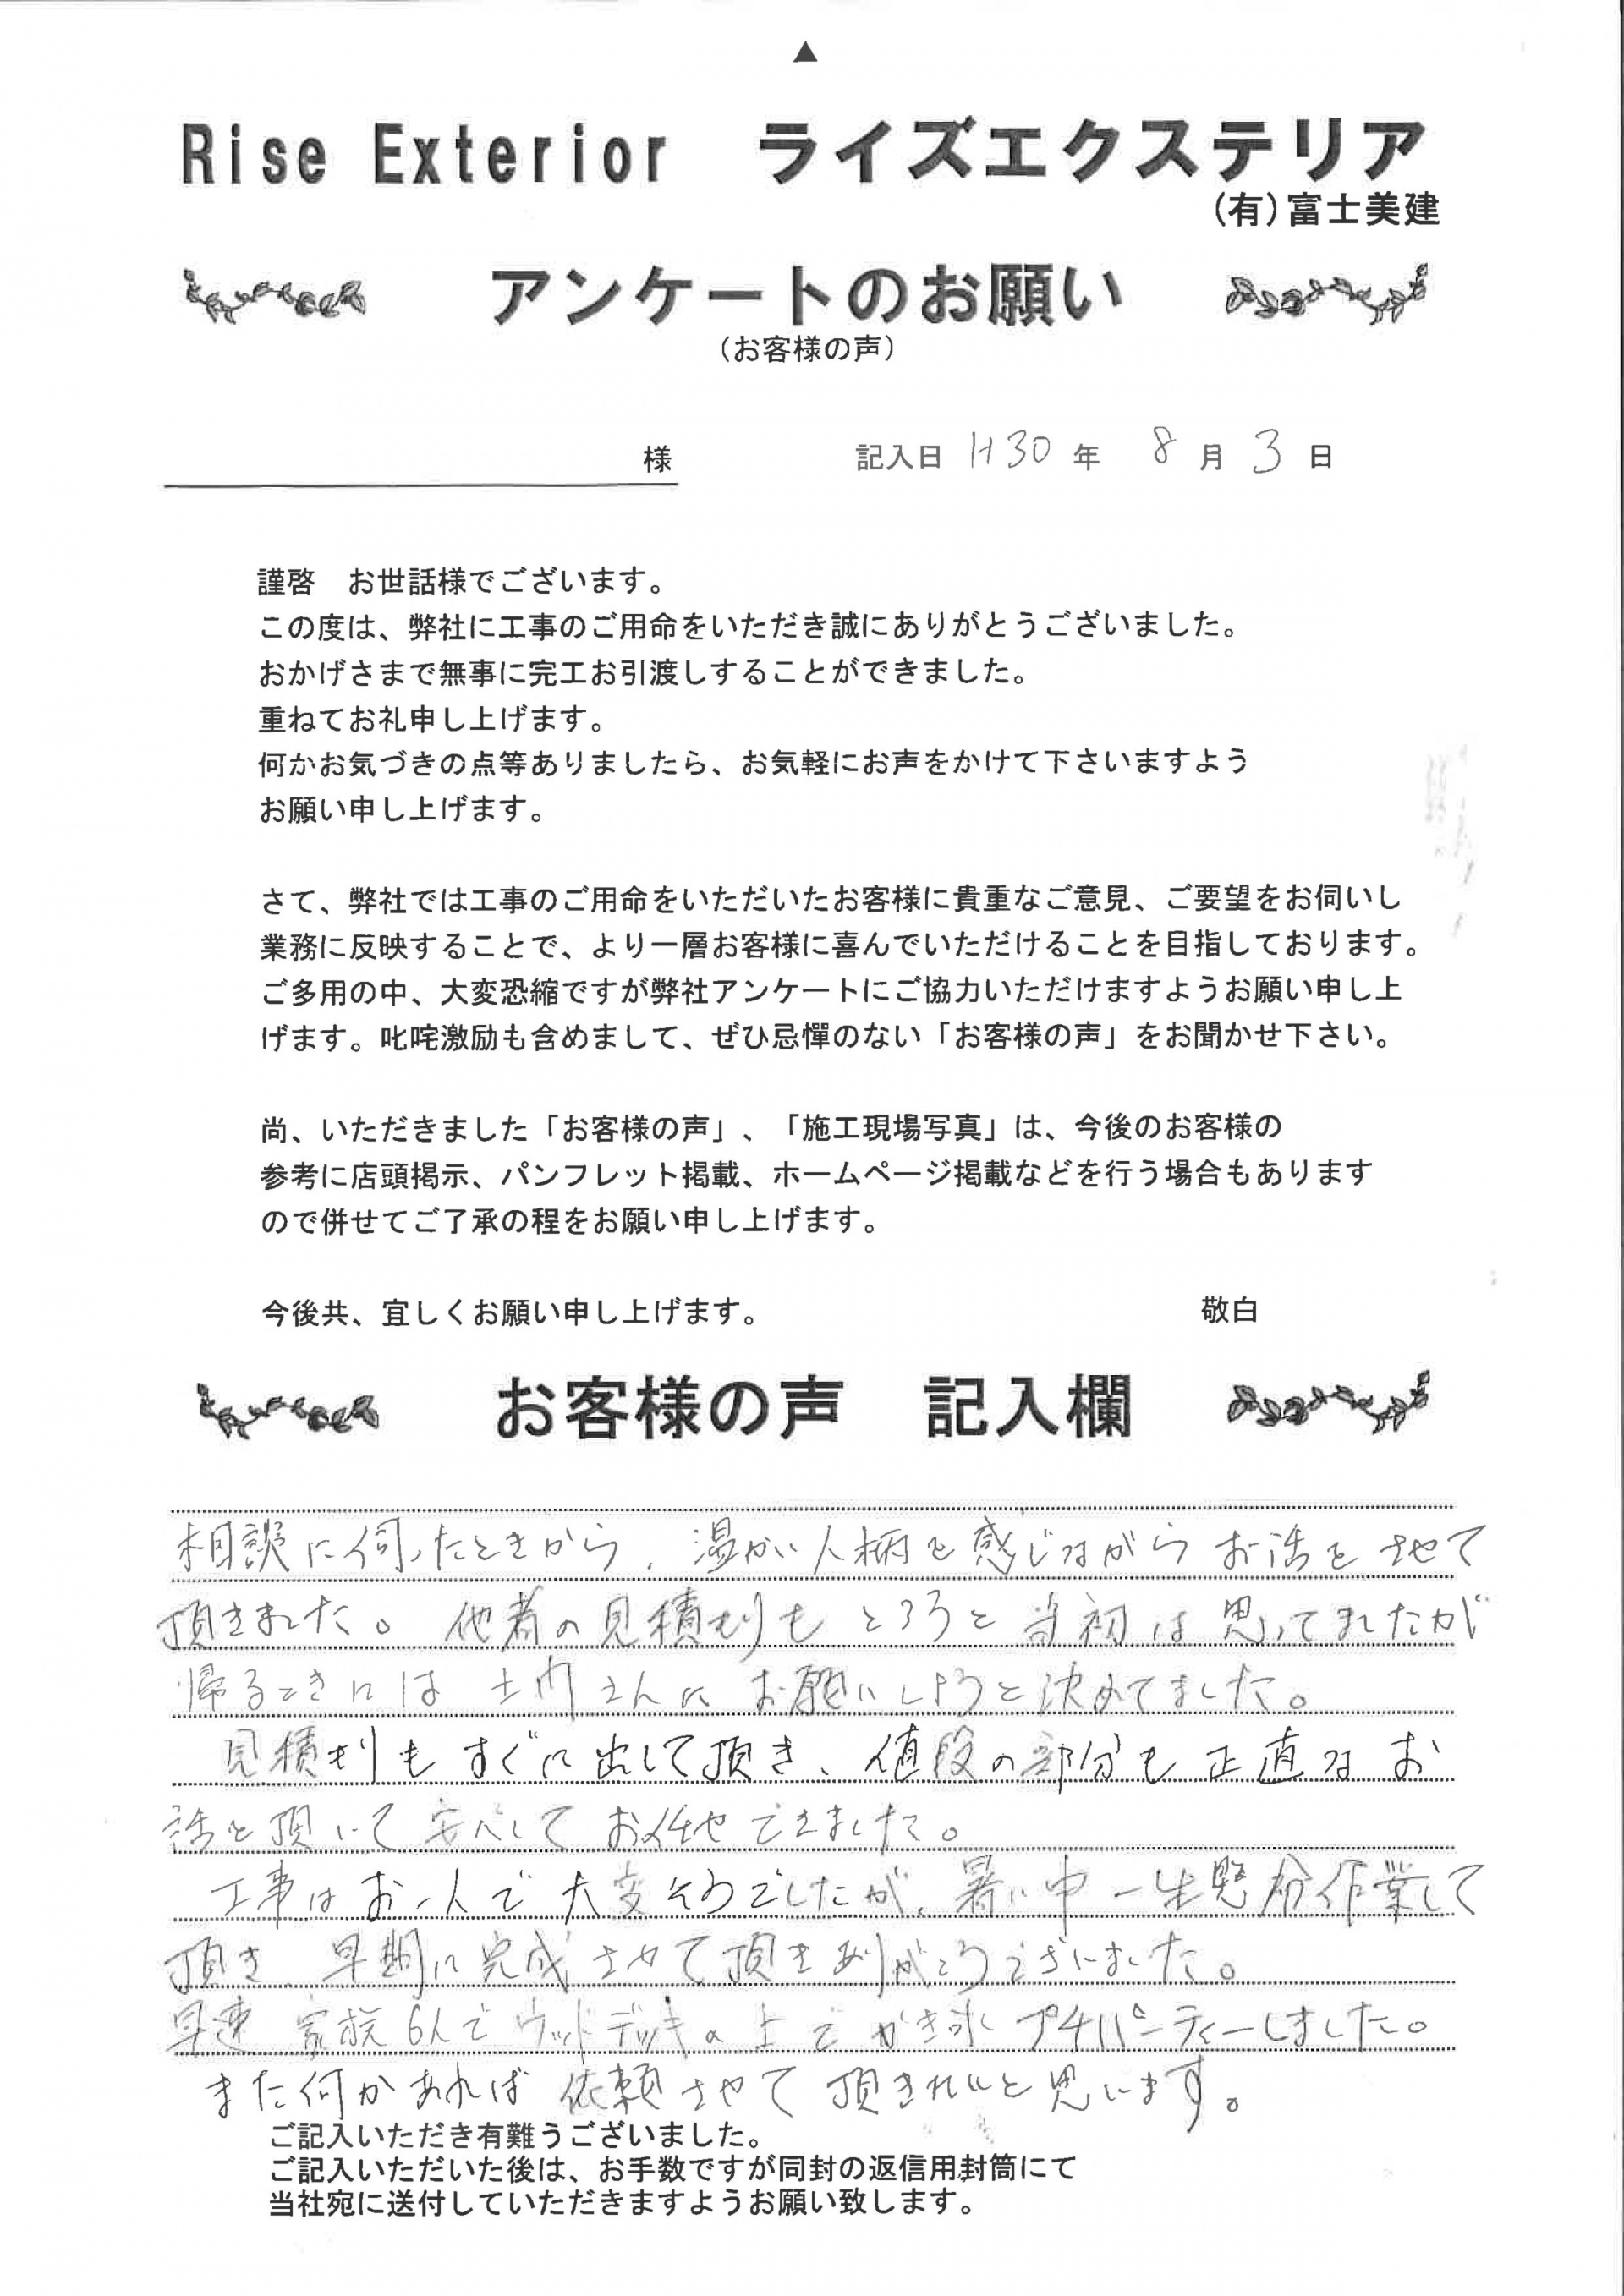 Rise Exterior ライズエクステリア
(有)富士美建
アンケートのお願い
(お客様の声)
様 記入日 H30 年 8 月 3 日
謹啓 お世話様でございます。
この度は、弊社に工事のご用命をいただき誠にありがとうございました。
おかげさまで無事に完工お引渡しすることができました。
重ねてお礼申し上げます。
何かお気づきの点等ありましたら、お気軽にお声をかけて下さいますよう
お願い申し上げます。
さて、弊社では工事のご用命をいただいたお客様に貴重なご意見、ご要望をお伺いし
業務に反映することで、より一層お客様に喜んでいただけることを目指しております。
ご多用の中、大変恐縮ですが弊社アンケートにご協力いただけますようお願い申し上
げます。叱咤激励も含めまして、ぜひ忌憚のない「お客様の声」をお聞かせ下さい。
尚、いただきました「お客様の声」、「施工現場写真」は、今後のお客様の
参考に店頭掲示、パンフレット掲載、ホームページ掲載などを行う場合もあります
ので併せてご了承の程をお願い申し上げます。
今後共、宜しくお願い申し上げます。 敬白
お客様の声 記入欄
相談に伺ったときから、温かい人柄を感じながらお話をさせて
頂きました。他者の見積もりもとろうと当初は思ってましたが
帰るときには さんにお願いしようと決めてました。
見積もりもすぐに出して頂き、値段の部分も正直なお
話を頂いて安心してお任せできました。
工事はお一人で大変そうでしたが、暑い中一生懸命作業して
頂き、早期に完成させて頂きありがとうございました。
早速 家族6人でウッドデッキの上でかき氷プチパーティーしました。
また何かあれば依頼させて頂きたいと思います。
ご記入いただき有難うございました。
ご記入いただいた後は、お手数ですが同封の返信用封筒にて
当社宛に送付していただきますようお願い致します。